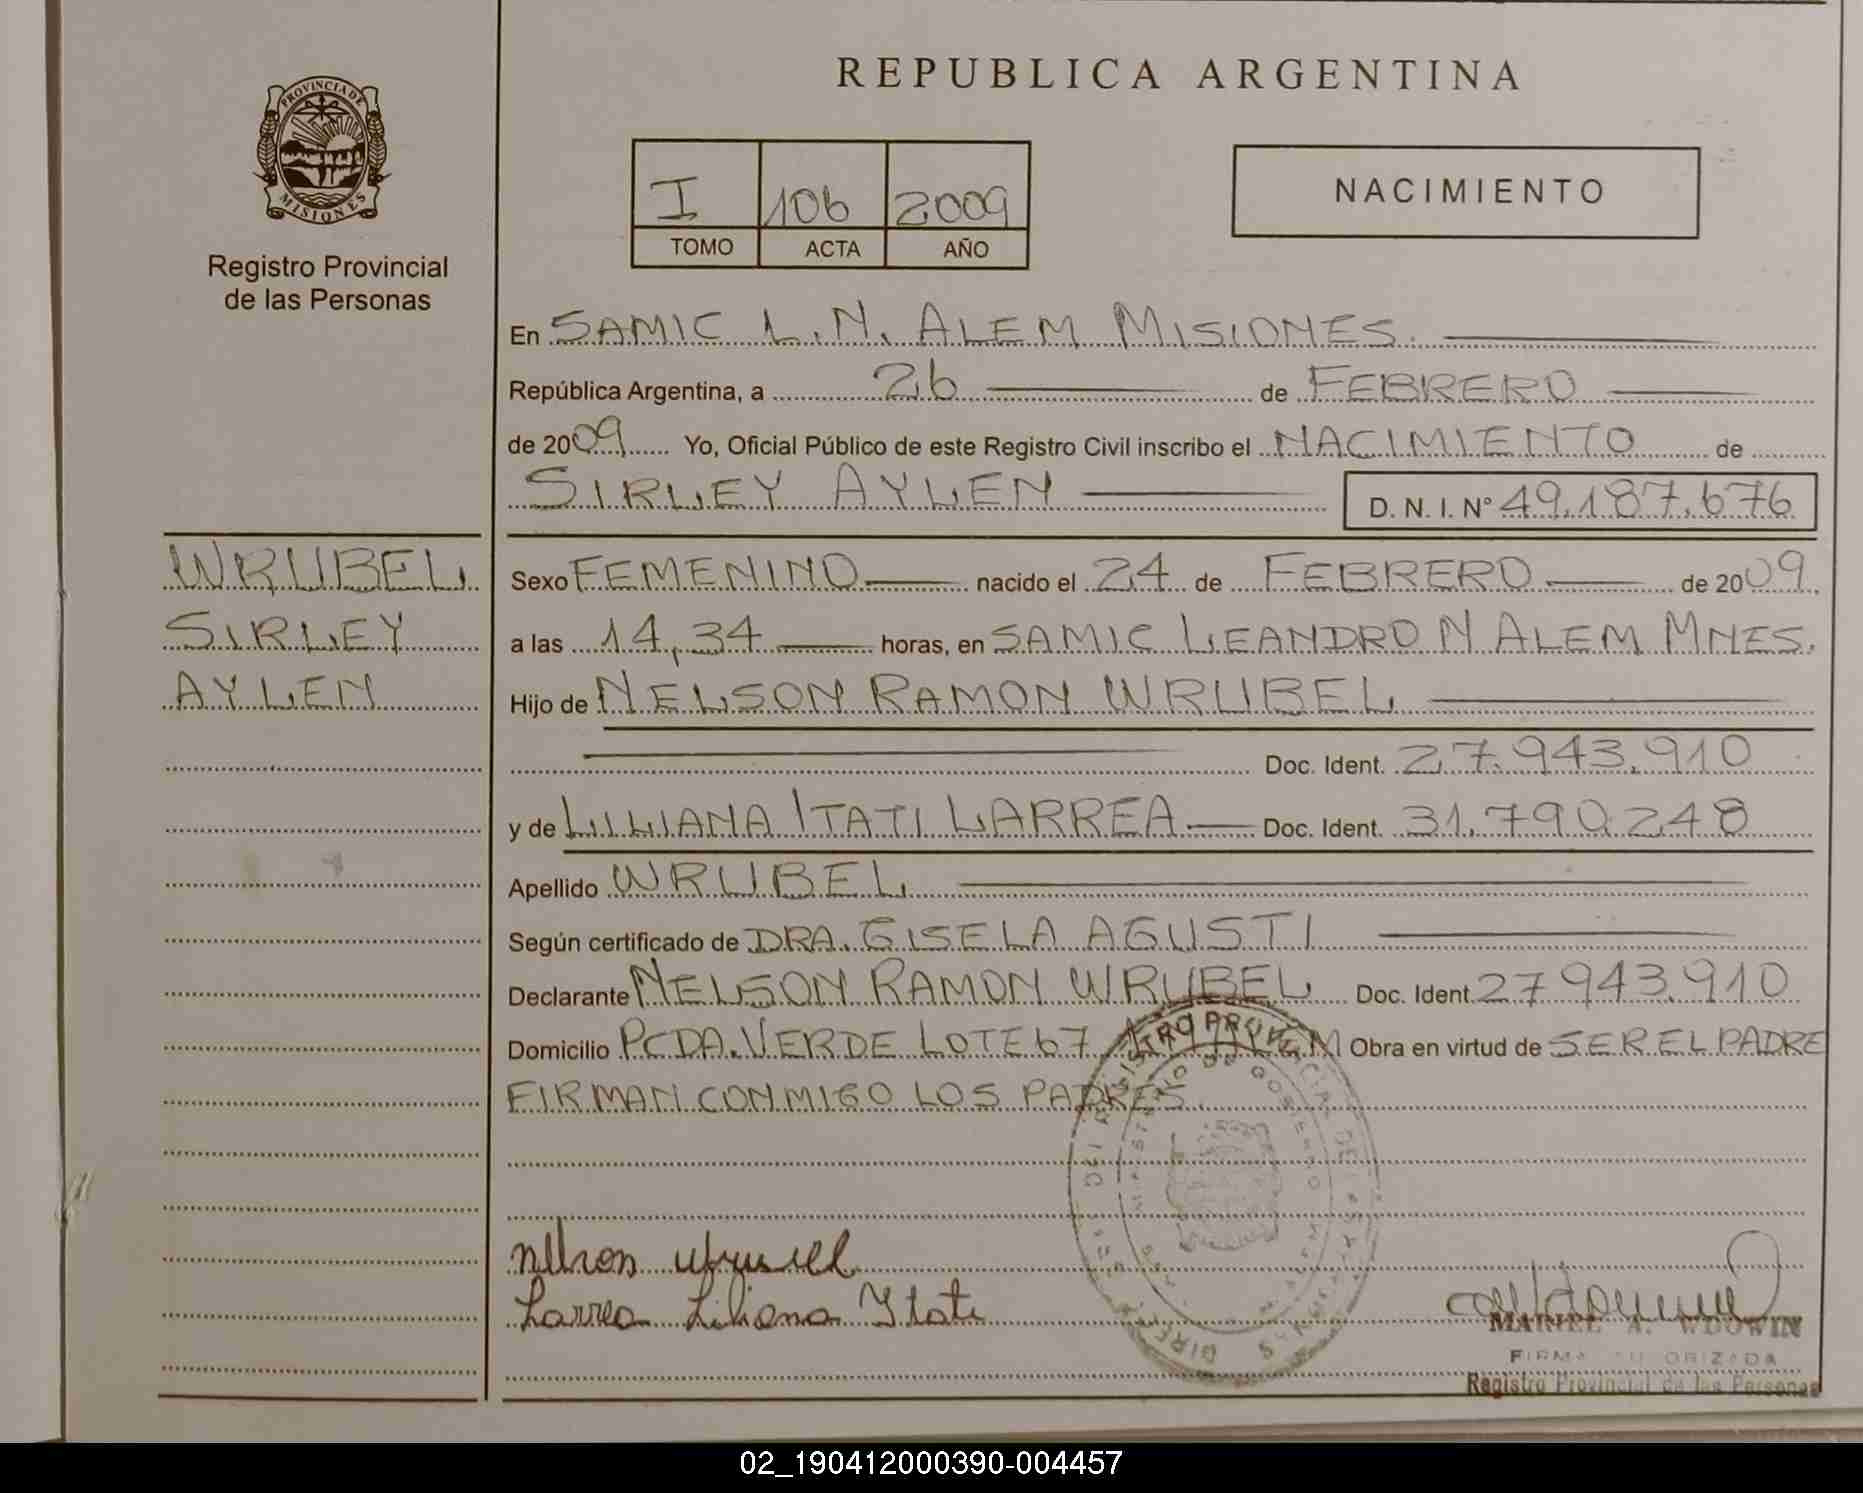 REPUBLICA ARGENTINA
PROVINCIA DE
MISIONES
Registro Provincial
de las Personas
I 106 2009
TOMO ACTA AÑO
NACIMIENTO
En SAMIC L.N. ALEM MISIONES.
República Argentina, a 26 de FEBRERO
de 2009 Yo, Oficial Público de este Registro Civil inscribo el NACIMIENTO de
SIRLEY AYLEN D. N. I. N° 49.187.676
WRUBEL
SIRLEY
AYLEN
Sexo FEMENINO nacido el 24 de FEBRERO de 2009
a las 14,34 horas, en SAMIC LEANDRO N ALEM MNES.
Hijo de NELSON RAMON WRUBEL
Doc. Ident. 27.943.910
y de LILIANA ITATI LARREA Doc. Ident. 31.790.248
Apellido WRUBEL
Según certificado de DRA. GISELA AGUSTI
Declarante NELSON RAMON WRUBEL Doc. Ident. 27943.910
Domicilio PCDA. VERDE LOTE 67 Obra en virtud de SER EL PADRE
FIRMAN CONMIGO LOS PADRES.
Nelson Wrubel
Larrea Liliana Itati
MARIEL A. WDOWIN
FIRMA AUTORIZADA
Registro Provincial de las Personas
02_190412000390-004457